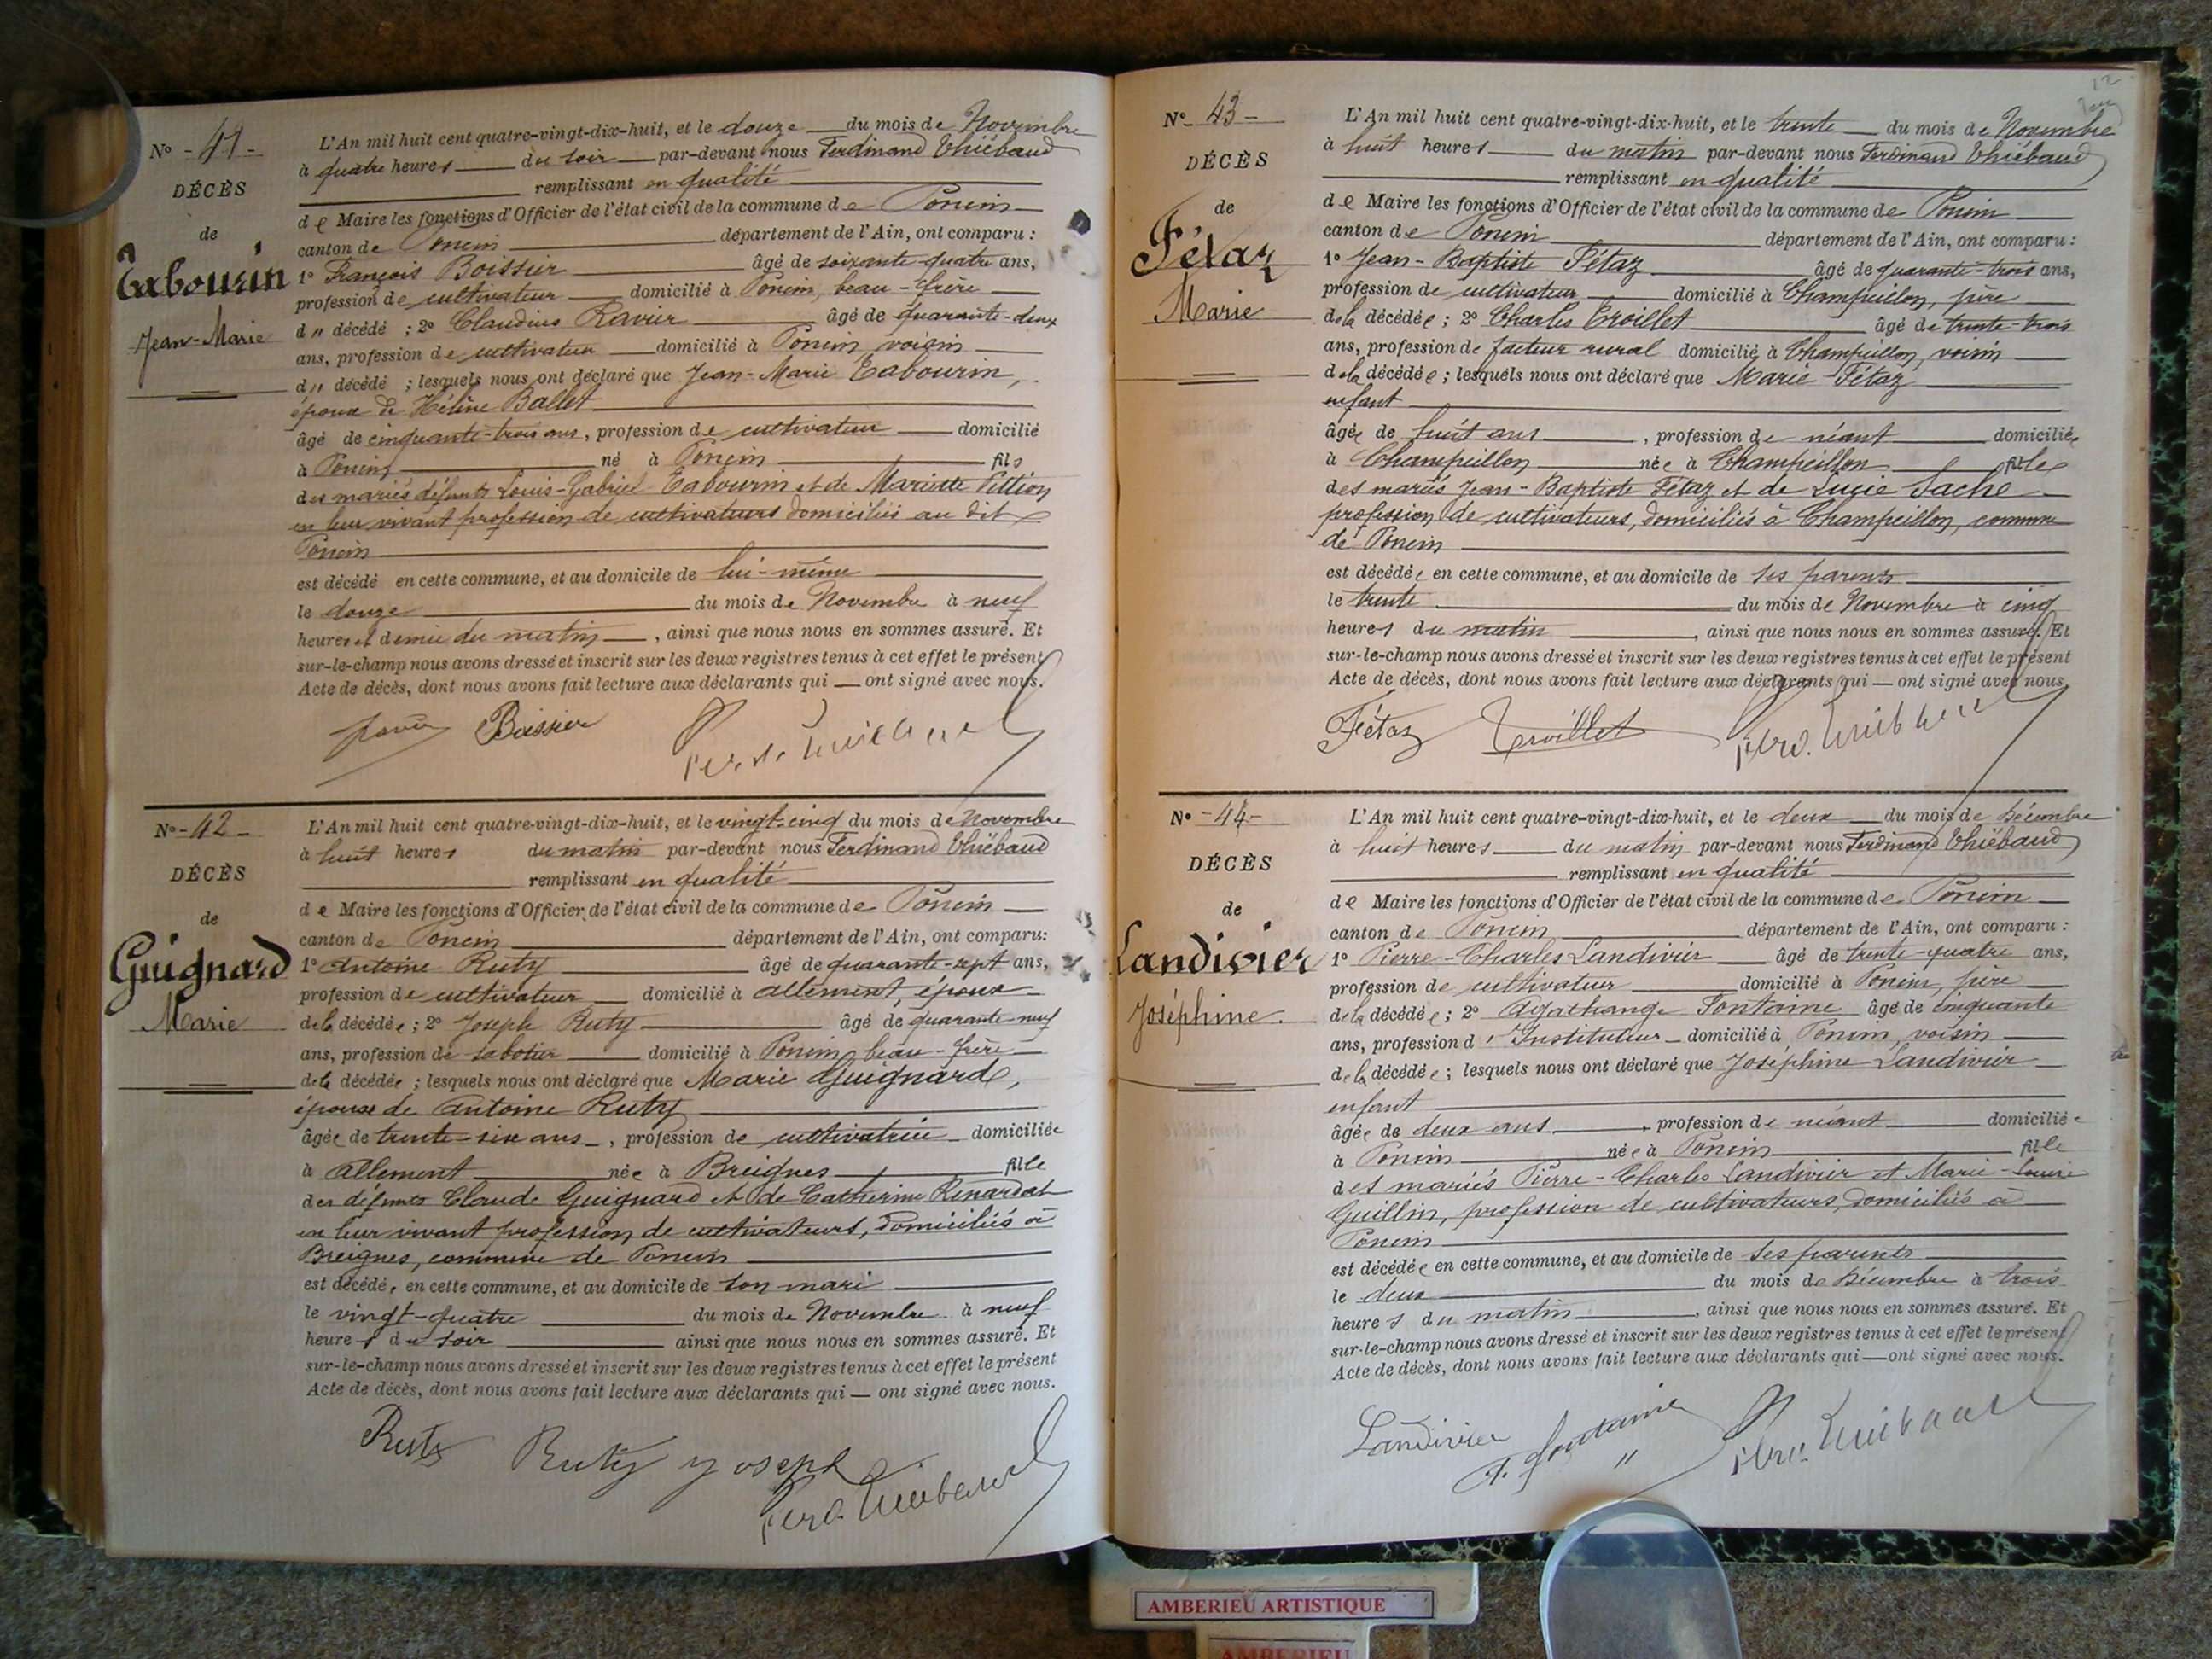 Nº - 41 -
DÉCÈS
de
Tabourin
Jean-Marie
L'An mil huit cent quatre-vingt-dix-huit, et le douze du mois de Novembre
à quatre heures du soir par-devant nous Ferdinand Thiébaud
remplissant en qualité
de Maire les fonctions d'Officier de l'état civil de la commune de Poncin
canton de Poncin département de l'Ain, ont comparu :
1º François Boissier âgé de soixante-quatre ans,
profession de cultivateur domicilié à Poncin, beau-frère
du décédé ; 2º Claudius Ravier âgé de quarante-deux
ans, profession de cultivateur domicilié à Poncin, voisin
du décédé ; lesquels nous ont déclaré que Jean-Marie Tabourin,
époux de Hélène Ballet
âgé de cinquante-trois ans, profession de cultivateur domicilié
à Poncin né à Poncin fils
des mariés défunts Louis-Gabriel Tabourin et de Mariette
en leur vivant profession de cultivateurs domiciliés au dit
Poncin
est décédé en cette commune, et au domicile de lui-même
le douze du mois de Novembre à neuf
heures et demie du matin, ainsi que nous nous en sommes assuré. Et
sur-le-champ nous avons dressé et inscrit sur les deux registres tenus à cet effet le présent
Acte de décès, dont nous avons fait lecture aux déclarants qui — ont signé avec nous.
Boissier
Nº - 42 -
DÉCÈS
de
Guignard
Marie
L'An mil huit cent quatre-vingt-dix-huit, et le vingt-cinq du mois de Novembre
à huit heures du matin par-devant nous Ferdinand Thiébaud
remplissant en qualité
de Maire les fonctions d'Officier de l'état civil de la commune de Poncin
canton de Poncin département de l'Ain, ont comparu :
1º Antoine Ruty âgé de quarante-sept ans,
profession de cultivateur domicilié à Allement, époux
de la décédée ; 2º Joseph Ruty âgé de quarante-neuf
ans, profession de sabotier domicilié à Poncin, beau-frère
de la décédée ; lesquels nous ont déclaré que Marie Guignard,
épouse de Antoine Ruty
âgée de trente-six ans, profession de cultivatrice domiciliée
à Allement née à Breignes fille
des défunts Claude Guignard et de Catherine Renardat
en leur vivant profession de cultivateurs, domiciliés à
Breignes, commune de Poncin
est décédée en cette commune, et au domicile de son mari
le vingt-quatre du mois de Novembre à neuf
heures du soir ainsi que nous nous en sommes assuré. Et
sur-le-champ nous avons dressé et inscrit sur les deux registres tenus à cet effet le présent
Acte de décès, dont nous avons fait lecture aux déclarants qui — ont signé avec nous.
Ruty Ruty Joseph
Ferd. Thiébaud
Nº - 43 -
DÉCÈS
de
Fétaz
Marie
L'An mil huit cent quatre-vingt-dix-huit, et le trente du mois de Novembre
à huit heures du matin par-devant nous Ferdinand Thiébaud
remplissant en qualité
de Maire les fonctions d'Officier de l'état civil de la commune de Poncin
canton de Poncin département de l'Ain, ont comparu :
1º Jean-Baptiste Fétaz âgé de quarante-trois ans,
profession de cultivateur domicilié à Champeillon, père
de la décédée ; 2º Charles Croillet âgé de trente-trois
ans, profession de facteur rural domicilié à Champeillon, voisin
de la décédée ; lesquels nous ont déclaré que Marie Fétaz
enfant
âgée de huit ans, profession de néant domiciliée
à Champeillon née à Champeillon fille
des mariés Jean-Baptiste Fétaz et de Lucie Sache
profession de cultivateurs, domiciliés à Champeillon, commune
de Poncin
est décédée en cette commune, et au domicile de ses parents
le trente du mois de Novembre à cinq
heures du matin, ainsi que nous nous en sommes assuré. Et
sur-le-champ nous avons dressé et inscrit sur les deux registres tenus à cet effet le présent
Acte de décès, dont nous avons fait lecture aux déclarants qui — ont signé avec nous.
Fétaz Croillet Ferd. Thiébaud
Nº - 44 -
DÉCÈS
de
Landivier
Joséphine.
L'An mil huit cent quatre-vingt-dix-huit, et le deux du mois de Décembre
à huit heures du matin par-devant nous Ferdinand Thiébaud
remplissant en qualité
de Maire les fonctions d'Officier de l'état civil de la commune de Poncin
canton de Poncin département de l'Ain, ont comparu :
1º Pierre-Charles Landivier âgé de trente-quatre ans,
profession de cultivateur domicilié à Poncin, père
de la décédée ; 2º Agathange Fontaine âgé de cinquante
ans, profession d'Instituteur domicilié à Poncin, voisin
de la décédée ; lesquels nous ont déclaré que Joséphine Landivier
enfant
âgée de deux ans, profession de néant domiciliée
à Poncin née à Poncin fille
des mariés Pierre-Charles Landivier et Marie-Louise
Guillin, profession de cultivateurs, domiciliés à
Poncin
est décédée en cette commune, et au domicile de ses parents
le deux du mois de Décembre à trois
heures du matin, ainsi que nous nous en sommes assuré. Et
sur-le-champ nous avons dressé et inscrit sur les deux registres tenus à cet effet le présent
Acte de décès, dont nous avons fait lecture aux déclarants qui — ont signé avec nous.
Landivier A. Fontaine Ferd. Thiébaud
AMBERIEU ARTISTIQUE
AMBERIEU